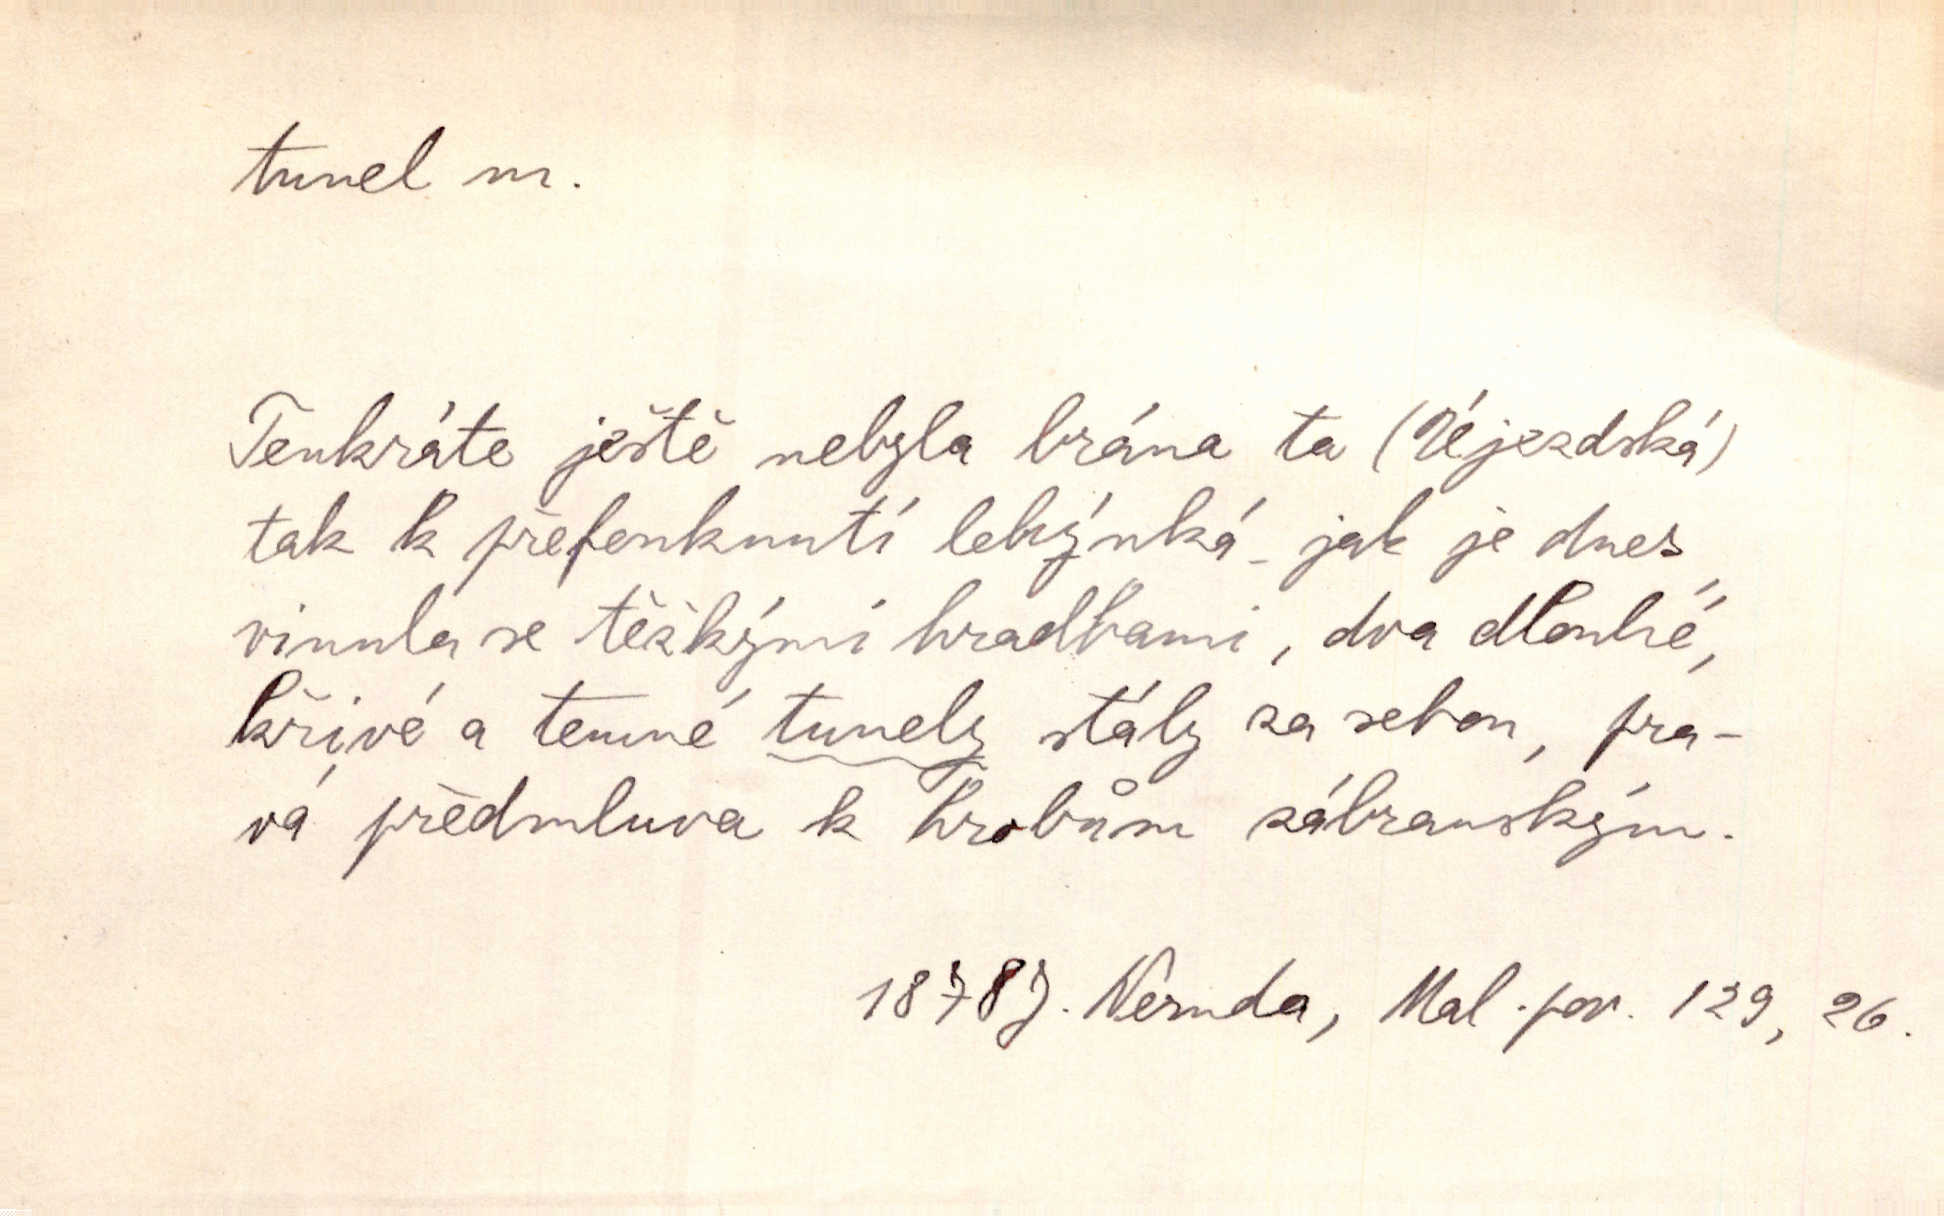 tunel m.
Tenkráte ještě nebyla brána ta (Újezdská)
tak k přefouknutí lehýnká jak je dnes,
vinula se těžkými hradbami, dva dlouhé,
křivé a temné tunely stály za sebou, pra-
vá předmluva k hrobům zábranským.
1878 J. Neruda, Mal. pov. 129, 26.